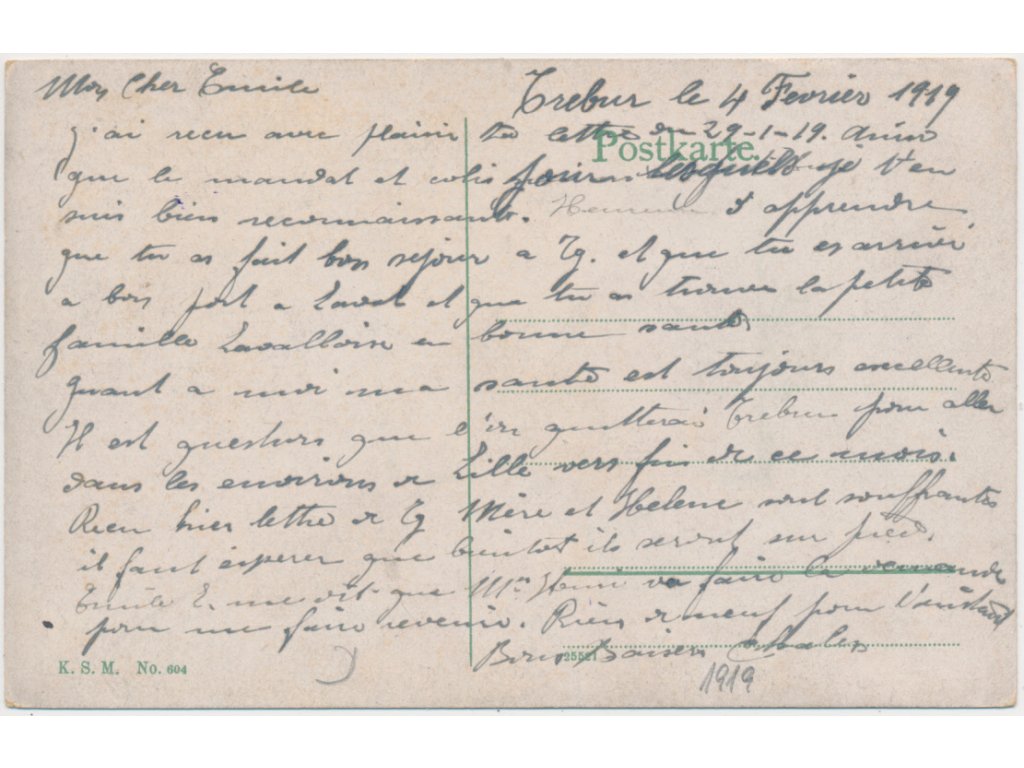 Mon Cher Emile
Trebur le 4 Fevrier 1919
Postkarte
J'ai recu avec plaisir ta lettre du 29-1-19. ainsi
que le mandat et colis pour lesquels je t'en
suis bien reconnaissant. Heureux d'apprendre
que tu as fait bon sejour a Tg. et que tu es arrivé
a bon port a Laval et que tu as trouvé la petite
famille Lavalloise en bonne santé.
quant a moi ma santé est toujours excellente
Il est question que l'on quitterai Trebur pour aller
dans les environs de Lille vers fin de ce mois.
Recu hier lettre de Tg Mère et Helene sont souffrantes
il faut esperer que bientot ils seront sur pied.
Emile E. me dit que Mr Henri va faire la demande
pour me faire revenir. Rien de neuf pour l'instant
Bons Baisers
K. S. M. No. 604
25521
1919